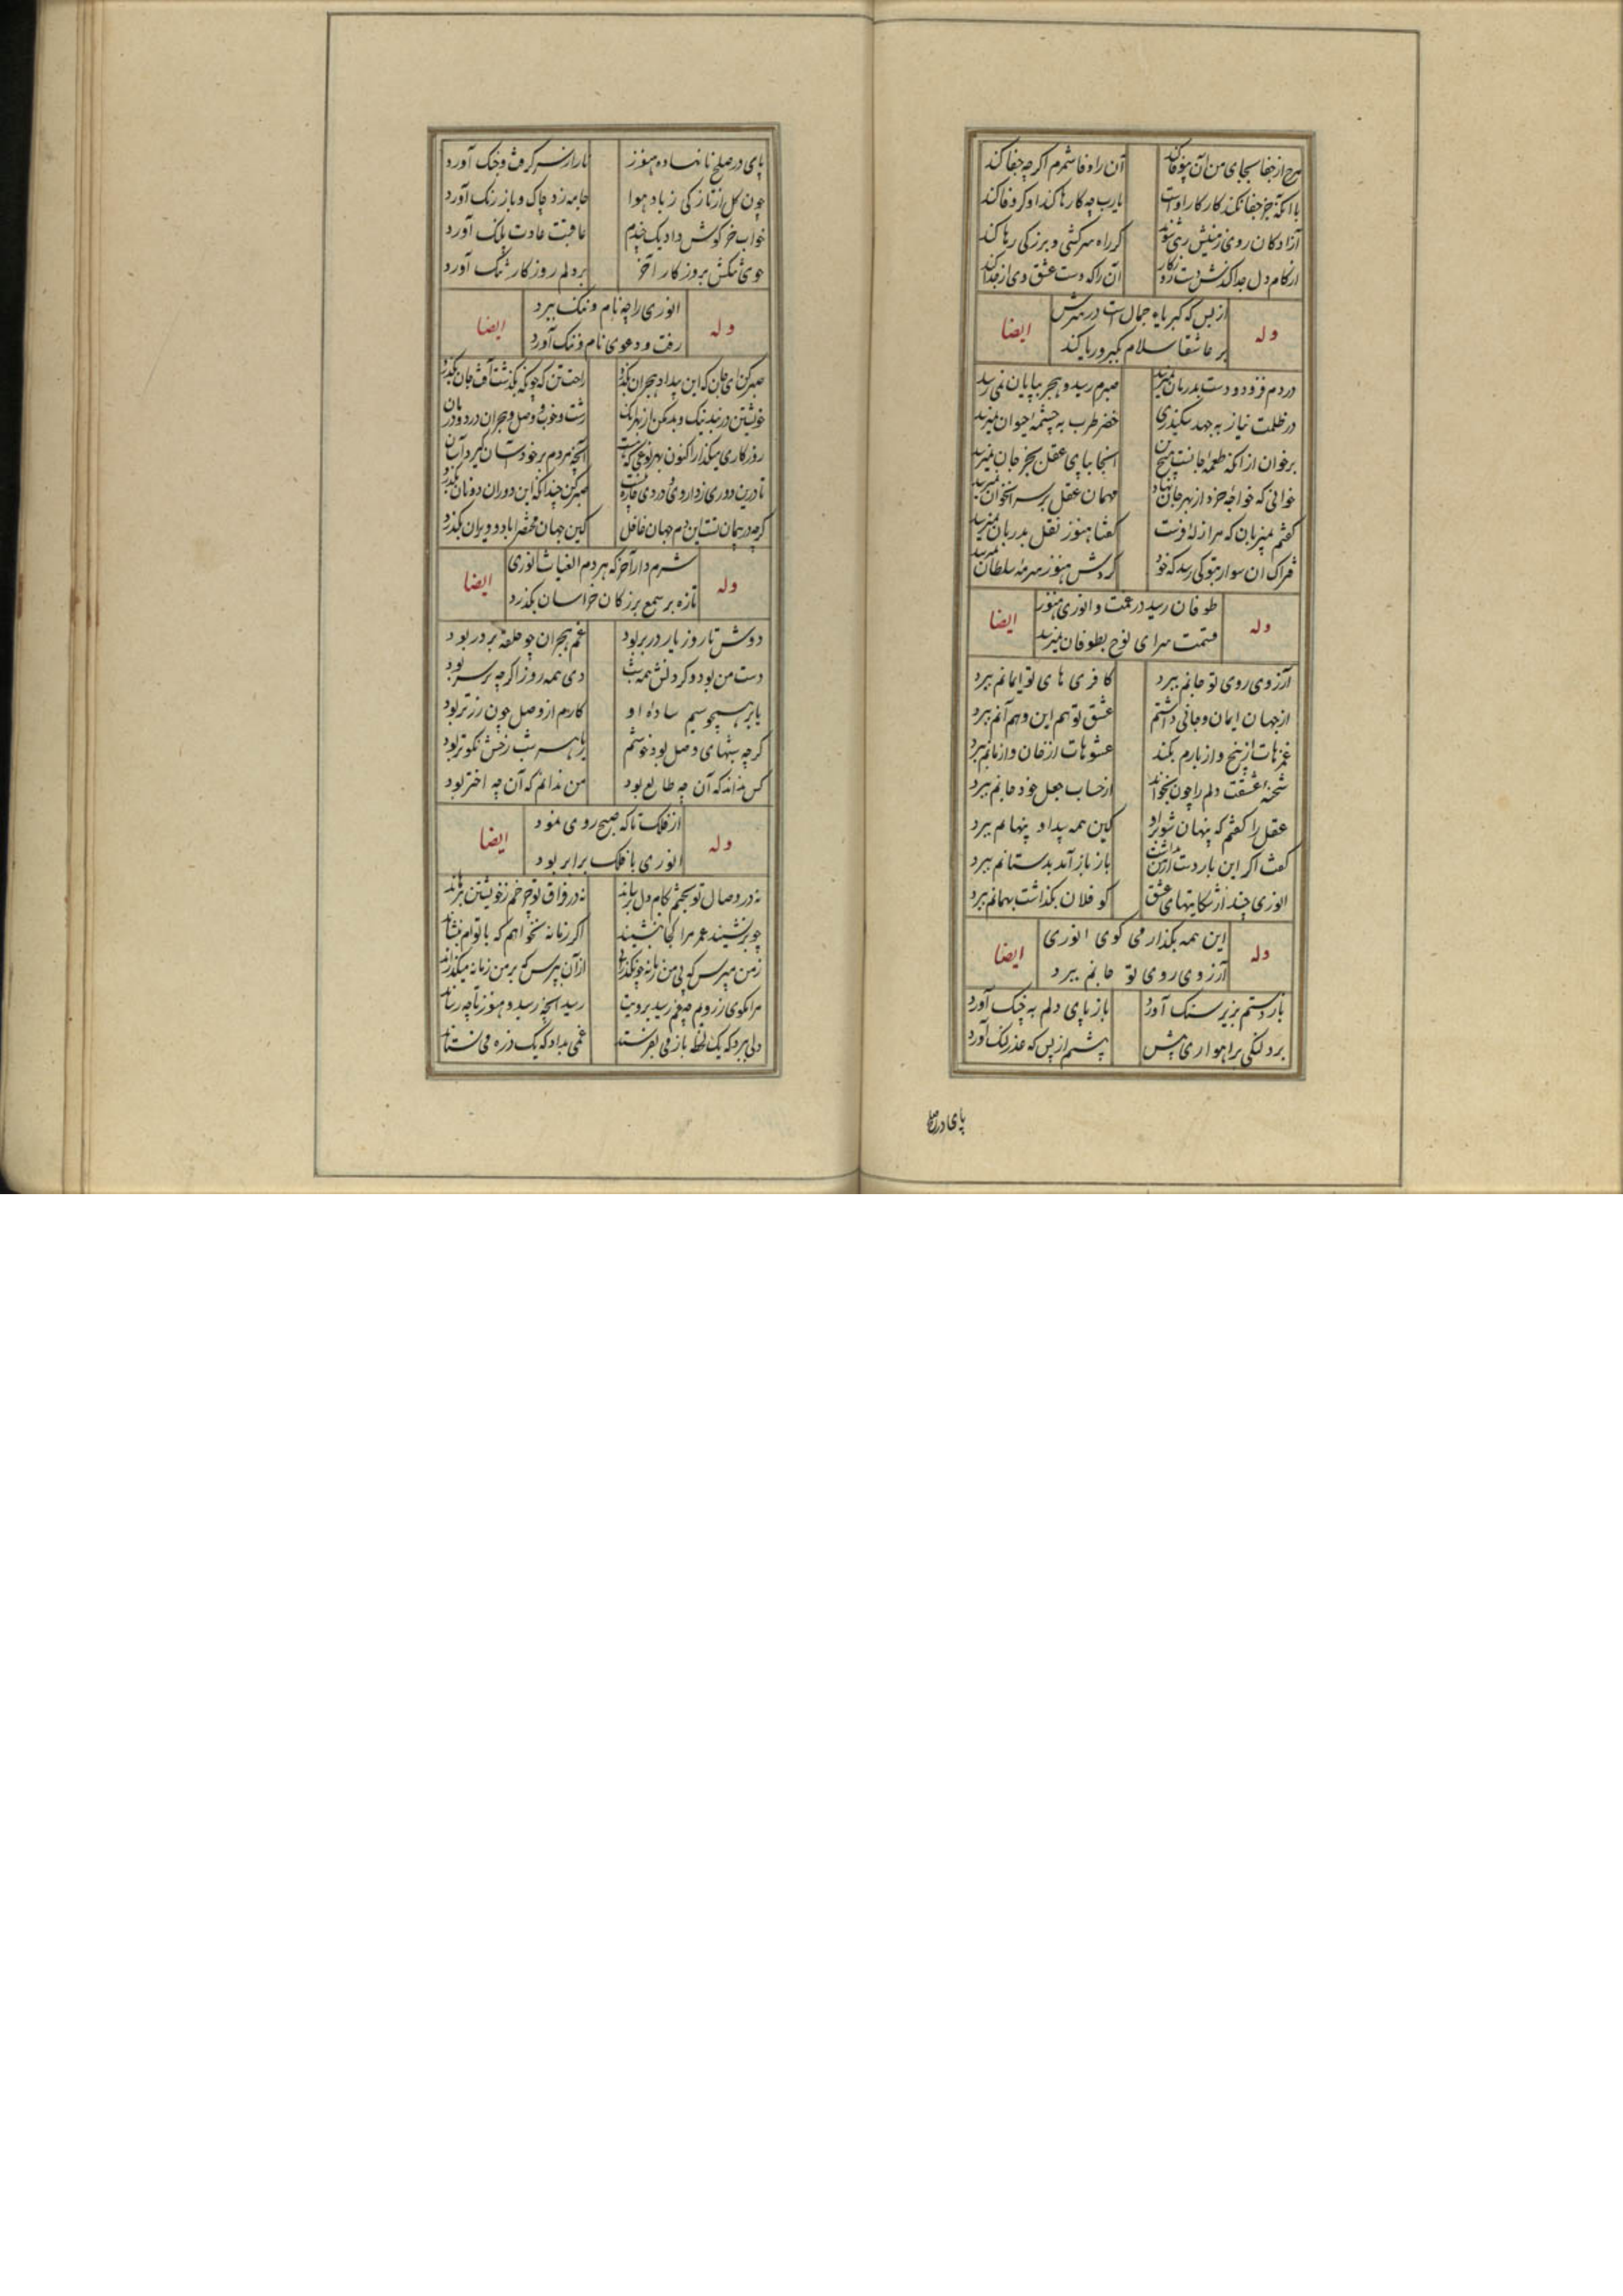 هرچ از جفا بجای من آن بیوفا کند آن را وفا شمرم اگرچه جفا کند
با آنکه جز جفا نکند کار کار اوست یارب چه کارها کند او گر وفا کند
آزادگان روی زمینش رهی شوند گر راه سرکشی و بزرگی رها کند
از کام دل جدا کندش دست روزگار آن را که دست عشق وی از خود جدا کند
وله از بس که کبریاء جمال است در سرش ایضا
بر عاشقا سلام بکبر و ریا کند
دردم فزود و دست بدرمان نمیرسد صبرم رسید و هجر بپایان نمی رسد
در ظلمت نیاز به جهد سکندری خضر طرب به چشمه حیوان نمیرسد
برخوان از آنکه طعمه جانست هیچ تن آنجا بپای عقل بجز جان نمیرسد
خوانی که خواجه خرد از بهر جان نهاد مهمان عقل بر سر آن خوان نمیرسد
گفتم بمیزبان که مرا زله فرست گفتا هنوز نقل بدربان نمیرسد
فتراک آن سوار بتو کی رسد که خود گردش هنوز سرمه سلطان نمیرسد
وله طوفان رسید در غمت و انوری هنوز ایضا
قسمت سرای نوح بطوفان نمیرسد
آرزوی روی تو جانم ببرد کافری های تو ایمانم ببرد
از جهان ایمان و جانی داشتم عشق تو هم این و هم آنم ببرد
غمزهات از بیخ و از بارم بکند عشوهات از خان و از مانم ببرد
شحنه عشقت دلم را چون بخواند از حساب جعل خود جانم ببرد
عقل را گفتم که پنهان شو برو کین همه پیدا و پنهانم ببرد
گفت اگر این بار دست از من بداشت باز بازآمد بدستانم ببرد
انوری چند از شکایتهای عشق کو فلان بگذاشت بهمانم ببرد
وله این همه بگذار می گوی انوری ایضا
آرزوی روی تو جانم ببرد
باز دستم بزیر سنگ آورد باز پای دلم به چنگ آورد
برد لنگی براهواری پیش پیشم از بس که عذر لنگ آورد
پای در صلح
پای در صلح نانهاده هنوز باز از سر گرفت و جنگ آورد
چون گل از تازگی ز باد هوا جامه زد چاک و باز رنگ آورد
خواب خرگوش داد یک چندم عاقبت عادت پلنگ آورد
خوی تنگش بروزگار آخر بر دلم روزگار تنگ آورد
وله انوری را چه نام و ننگ ببرد ایضا
رفت و دعوی نام و ننگ آورد
صبر کن ای جان که این بیداد هجران بگذرد راحت تن که چونکه بگذشت آفت جان بگذرد
خویشتن در بند نیک و بد مکن از بهر آنک زشت و خوب و وصل و هجران درد و درمان
روزگاری میگذار اکنون بهر نوعی که هست آنچه مردم بر خود آسان گیرد آسان
تا درین دوری ز داروی و دردی چاره نیست صبر کن چندانکه این دوران دونان بگذرد
گرچه در پیمان تست این دم جهان غافل کین جهان مختصر آباد و ویران بگذرد
وله شرم دار آخر که هر دم الغیاث انوری ایضا
تازه بر سمع بزرگان خراسان بگذرد
دوش تا روز یار در بر بود غم هجران چو حلقه بر در بود
دست من بود و گردنش همه شب دی همه روز اگرچه بر سر بود
با بر همچو سیم ساده او کارم از وصل چون زر تر بود
گرچه شبهای وصل بود خوشم با همه شب رخش نکوتر بود
کس نداند که آن چه طالع بود من ندانم که آن چه اختر بود
وله از فلک تا که صبح روی نمود ایضا
انوری با فلک برابر بود
نه در وصال تو بختم بکام دل برساند نه در فراق تو چرخم ز خویشتن برهاند
چو برنشیند عمر مرا کجا بنشیند اگر زمانه نخواهم که با توام بنشاند
ز من مپرس که بی من زمانه چون گذرانی از آن بپرس که بر من زمانه میگذراند
مرا مگوی ز رویم چه غم رسید برویت رسید آنچه رسید و هنوز تا چه رساند
دلی ببرد که یک لحظه باز می نفرستد غمی بداد که یک ذره می نستاند